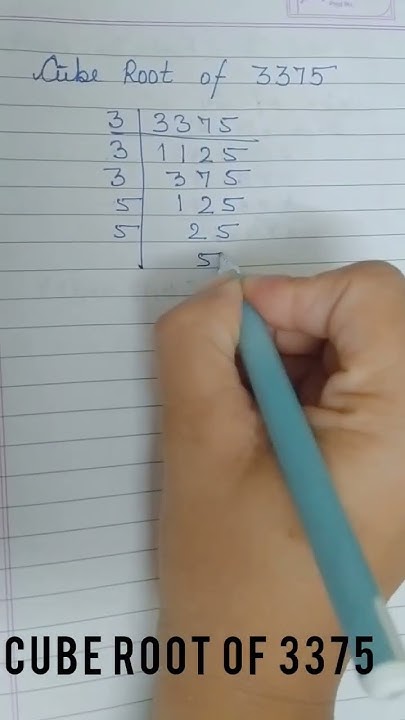 Cube Root of 3375
3 3375
3 1125
3 375
5 125
5 25
5
CUBE ROOT OF 3375